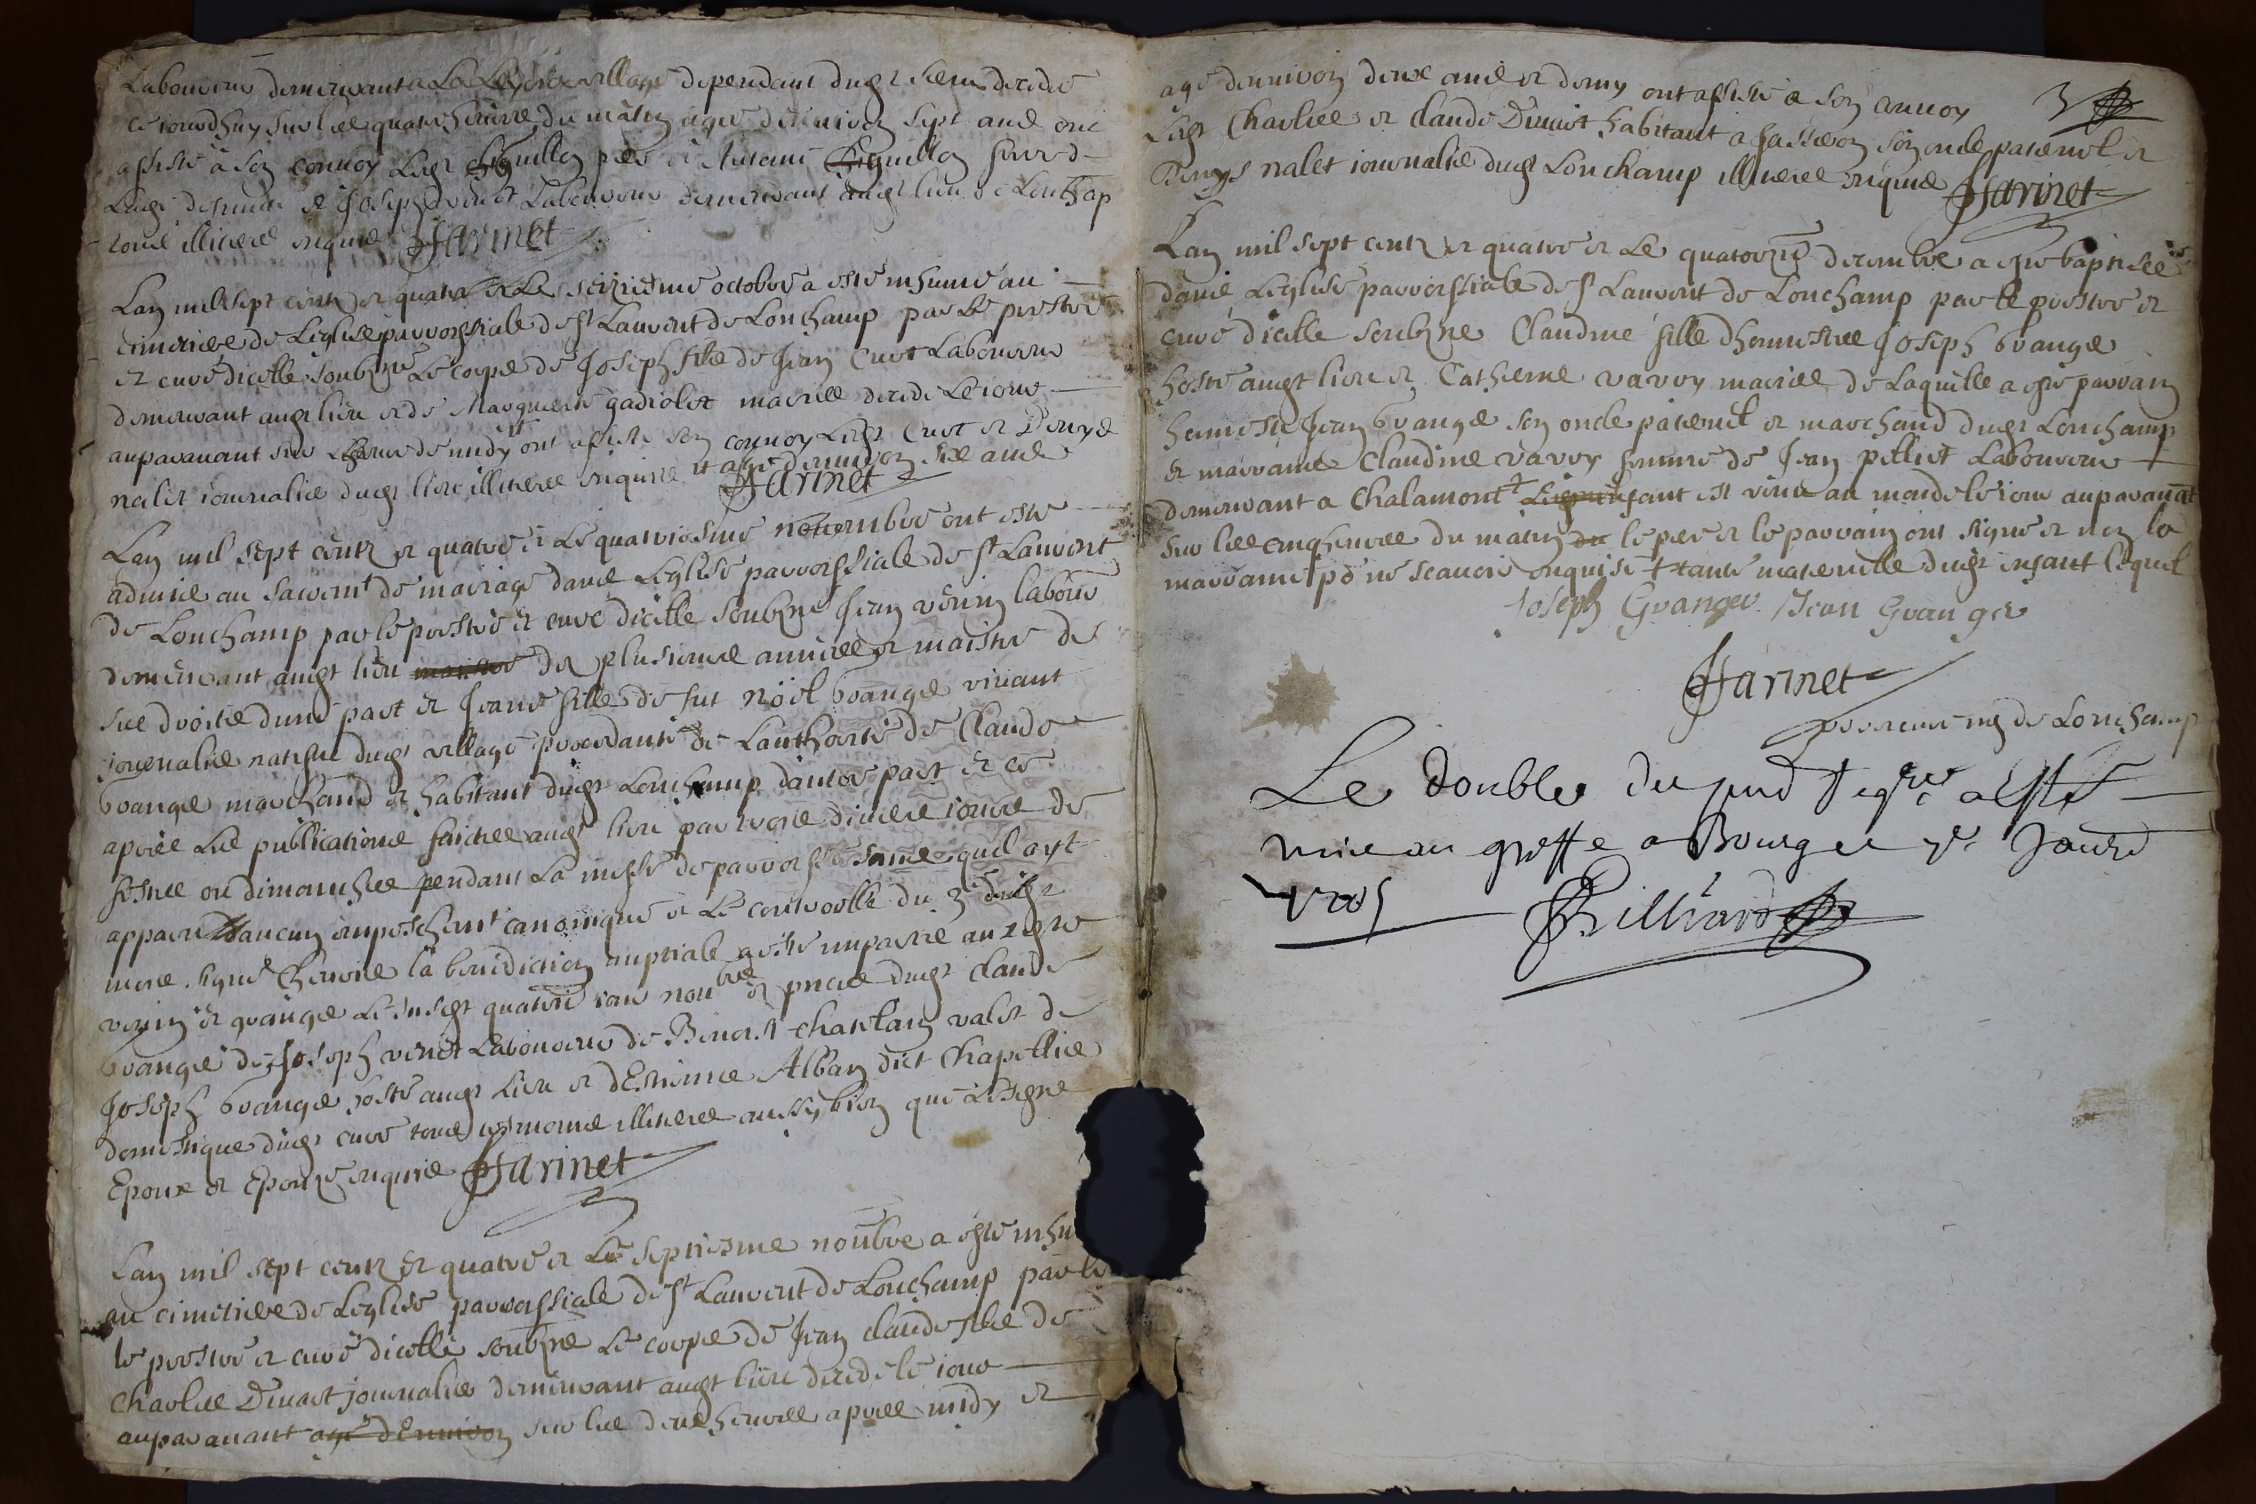 Laboureur demeurant a La village dependant dugt decede
ce iourdhuy sur les quatre heures du matin agé denuiron sept ans ont
assisté à son conuoy Ligt Eguillon pere et Antoine Eguillon
defunte & Joseph veret Laboureur demeurant audgt lieu de Lonchap
tous illiteres enquis Farinet
Lan mil sept centz et quatre et Le seiziesme octobre a esté inhumé au
cimetiere de Leglise parrossiale de st Laurent de Lonchamp par Le prestre
et curé dicelle soubzné Le corps de Joseph fils de Jean Cuet Laboureur
demeurant audgt lieu et de Marguerite gadiolet mariés decedé Le iour
auparauant sur Lheure de midy ont assisté son conuoy Ledgt Cuet et Denys
nalet iournalier dugt lieu illiteres enquis et agé denuiron six ans
Farinet
Lan mil sept centz et quatre et Le quatriesme nouembre ont esté
admis au sacremt de mariage dans Leglise parrossiale de st Laurent
de Lonchamp par le prestre et curé dicelle soubzné Jean verin labour
demeurant audgt lieu maistre dez plusieurs années et maistre de
ses droits dune part et Jeanne fille de fut Noël Grange viuant
iournalier natifue dugt village procedante de Lauthorité de Claude
Grange marchand et habitant dugt Lonchamp dautre part et ce
apres Les publications faictes audgt lieu par trois diuers iours de
festes ou dimanches pendant La messe de parrosse sans quil ayt
apparu daucun empeschemt canonique et Le controolle du 3 dudgt
mois signé Cheurier la benediction nuptiale a esté impartie auxdgts
verin et grange Le susdgt quatre nou^bre en pnce dugt Claude
Grange de Joseph veret Laboureur de Benoist chatelain valet de
Joseph Grange hoste audgt Lieu et dEstienne Alban dict Chapellier
domestique dugt curé tous tesmoins illiteres aussybien que Lesdgts
Epoux et Epouse enquis Farinet
Lan mil sept centz et quatre et Le septiesme noubre a esté inhu
au cimetiere de Leglise parrossiale de st Laurent de Lonchamp par le
le prestre et curé dicelle soubzné Le corps de Jean claude fils de
Charles Deuaet journalier demeurant audgt lieu decedé le iour
auparauant agé denuiron sur les deux heures apres midy et
agé denuiron deux ans et demy ont assisté a son conuoy 3
Ledgt Charles et Claude Deuaet habitant a son oncle paternel et
Denys nalet iournalier dugt Lonchamp illiteres enquis Farinet
Lan mil sept centz et quatre et Le quatorze decembre a esté baptisée
dans Leglise parrossiale de st Laurent de Lonchamp par le prestre et
curé dicelle soubzne Claudine fille dhonnestes Joseph Grange
hoste audgt lieu et Catherine vavoy mariés de Laquelle a esté parrain
honneste Jean Grange son oncle paternel et marchand dugt Lonchamp
et marraine Claudine vavoy femme de Jean pelliet Laboureur
demeurant a Chalamont Ledgt enfant est venu au monde le iour auparauat
sur les cinq heures du matin du le pere et le parrain ont signé et non la
marraine po ne scauoir enquise tante maternelle dugt enfant lequel
Joseph Granger Jean Granger
Farinet
pbre curé de Lonchamp
Le double du pnd Regre a esté
mis au greffe a Bourg ce 7e Janr
1705
Billiard